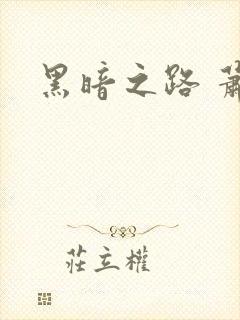 黑暗之路
莊立權